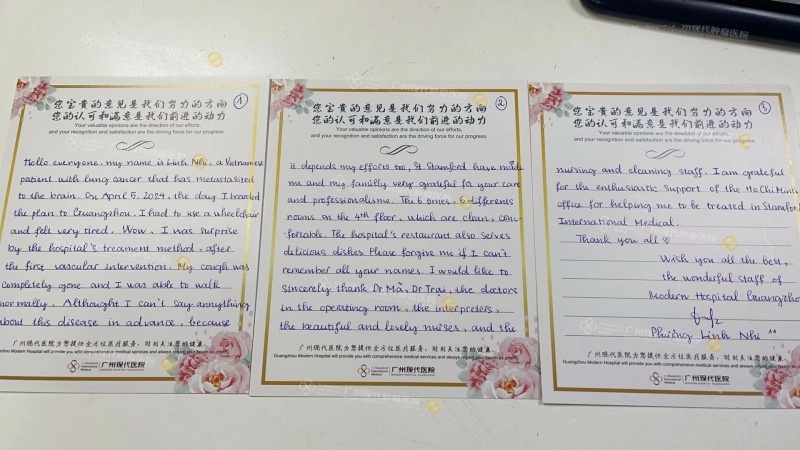 广州现代肿瘤医院
①
您宝贵的意见是我们努力的方向
您的认可和满意是我们前进的动力
Your valuable opinions are the direction of our efforts,
and your recognition and satisfaction are the driving force for our progress.
Hello everyone, my name is Linh Nhi, a Vietnamese
patient with lung cancer that has metastasised
to the brain. On April 5, 2024, the day I boarded
the plan to Guangzhou, I had to use a wheelchair
and felt very tired. Wow, I was surprise
by the hospital's treament method, after
the first vascular intervention. My cough was
completely gone and I was able to walk
normally. Althought I can't say annything
about this disease in advance, because
广州现代医院为您提供全方位医疗服务,时刻关注您的健康。
Guangzhou Modern Hospital will provide you with comprehensive medical services and always regard your health as priority.
St. Stamford International Medical
广州现代医院
MODERN HOSPITAL GUANGZHOU
②
您宝贵的意见是我们努力的方向
您的认可和满意是我们前进的动力
Your valuable opinions are the direction of our efforts,
and your recognition and satisfaction are the driving force for our progress.
it depends my efforts too, St. Stamford have made
me and my familly very grateful for your care
and professionalisme. The 6 times, 6 differents
rooms on the 4th floor, which are clean, com-
fortable. The hospital's restaurant also serves
delicious dishes. Please forgive me if I can't
remember all your names. I would like to
sincerely thank Dr Mã, Dr Trai, the doctors
in the operating room, the interpreters,
the beautiful and lovely nurses, and the
广州现代医院为您提供全方位医疗服务,时刻关注您的健康。
Guangzhou Modern Hospital will provide you with comprehensive medical services and always regard your health as priority.
St. Stamford International Medical
广州现代医院
MODERN HOSPITAL GUANGZHOU
③
您宝贵的意见是我们努力的方向
您的认可和满意是我们前进的动力
Your valuable opinions are the direction of our efforts,
and your recognition and satisfaction are the driving force for our progress.
nursing and cleaning staff. I am grateful
for the enthusiastic support of the Ho Chi Minh
office for helping me to be treated in Stamford
International Medical.
Thank you all ♡
Wish you all the best,
the wonderful staff of
Modern Hospital Guangzhou
Phương Linh Nhi ^^
广州现代医院为您提供全方位医疗服务,时刻关注您的健康。
Guangzhou Modern Hospital will provide you with comprehensive medical services and always regard your health as
St. Stamford International Medical
广州现代医院
MODERN HOSPITAL GUANGZHOU